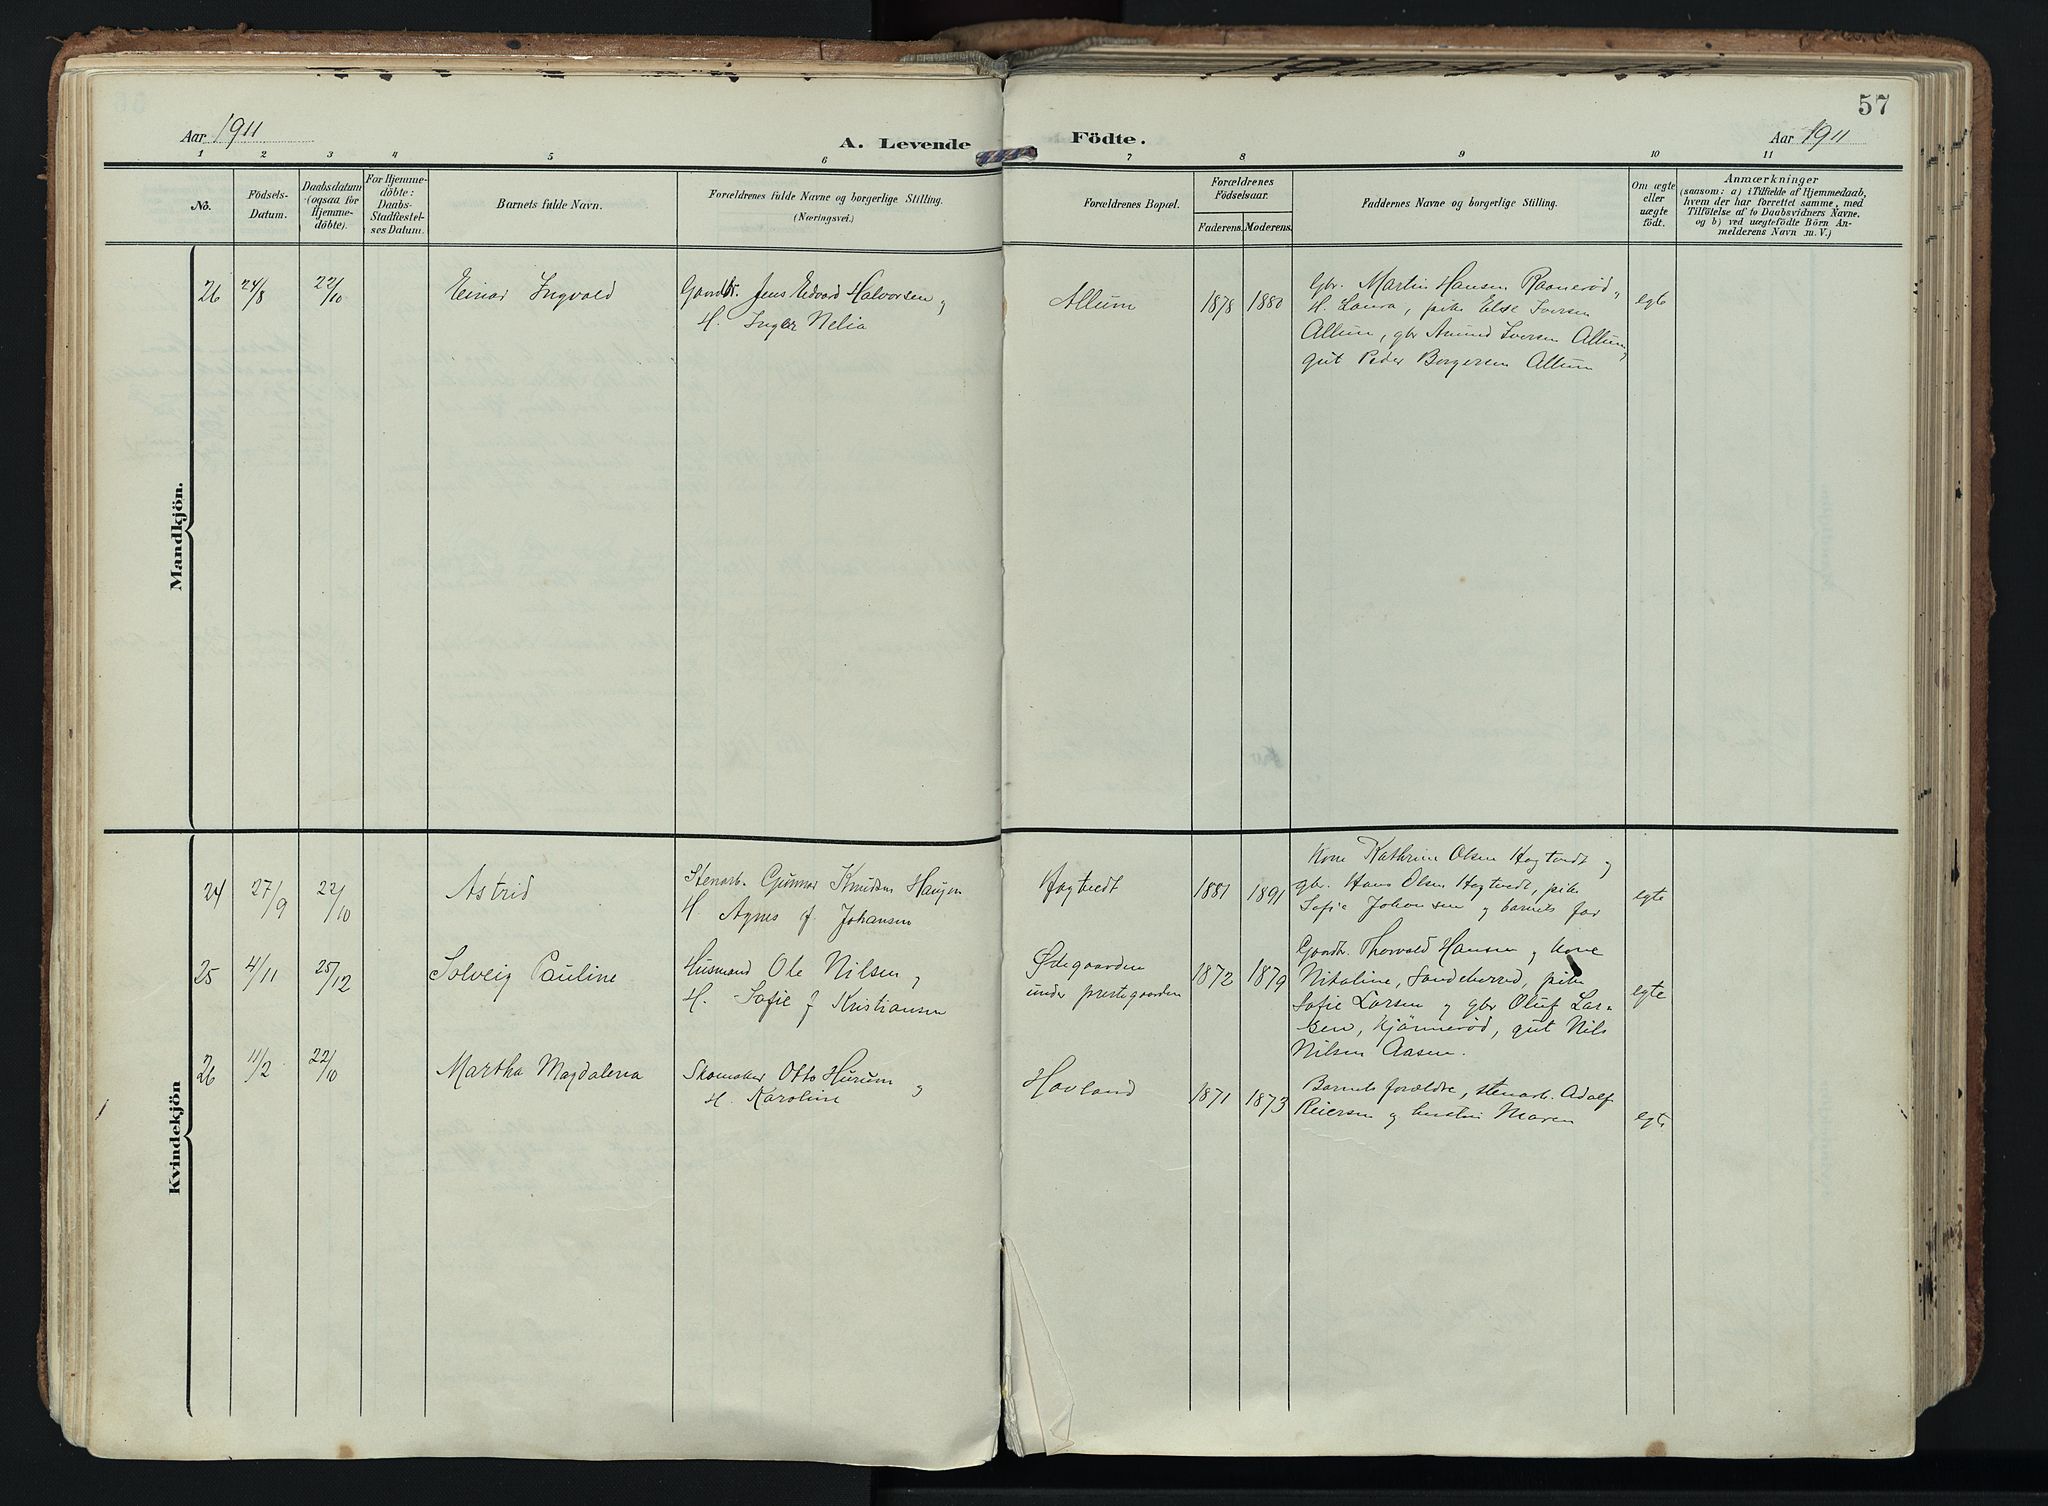 57
Aar 1911
A. Levende Födte.
Aar 1911
1 2 3 4 5 6 7 8 9 10 11
No.
Födsels-
Datum.
Daabsdatum
(ogsaa for
Hjemme-
döbte).
For Hjemme-
döbte:
Daabs-
Stadfæstel-
ses Datum.
Barnets fulde Navn.
Forældrenes fulde Navne og borgerlige Stilling.
(Næringsvei.)
Forældrenes Bopæl.
Forældrenes
Födselsaar.
Faderens. Moderens.
Faddernes Navne og borgerlige Stilling.
Om ægte
eller
uægte
födt.
Anmærkninger
(saasom: a) i Tilfælde af Hjemmedaab,
hvem der har forrettet samme, med
Tilföielse af to Daabsvidners Navne,
og b) ved uægtefödte Börn An-
melderens Navn m. V.)
Mandkjön.
26 24/8 22/10
Einar Ingvald
Gaardbr. Jens Edvard Halvorsen og
H. Inger Nelia
Allum
1878 1880
Gbr. Martin Hansen Raanerød,
H. Laura, pike Else Iversen
Allum, gbr Amund Iversen Allum,
gut Peder Borgersen Allum
egte
Kvindekjön
24 27/9 22/10
Astrid
Stenarb. Gunnar Knudsen Haugen
H. Agnes f. Johansen
Hogtvedt
1881 1891
Kone Kathrine Olsen Hogtvedt og
gbr. Hans Olsen Hogtvedt, pike
Sofie Johansen og barnets far
egte
25 4/11 25/12
Solveig Pauline
Husmand Ole Nilsen,
H. Sofie f Kristiansen
Ødegaarden
under prestegaarden
1872 1879
Gaardbr. Thorvald Hansen og kone
Nikoline, Sandeherred, pike
Sofie Larsen og gbr Oluf Lar-
sen, Kjønnerød, gut Nils
Nilsen Aasen.
egte
26 11/2 22/10
Martha Magdalena
Skomaker Otto Hurum og
H. Karoline
Hovland
1871 1873
Barnets forældre, stenarb. Adolf
Reiersen og hustru Maren
egte